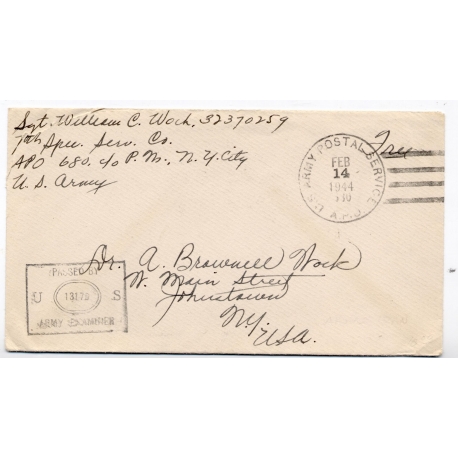 Sgt. William C. Wock, 32370259
7th Spec. Serv. Co.
APO 680, c/o P.M., N.Y. City
U.S. Army
Free
U.S. ARMY POSTAL SERVICE
FEB
14
1944
A.P.O.
Dr. A. Brownell Wock
W. Main Street
Johnstown
N.Y.
USA.
PASSED BY
U S
ARMY EXAMINER